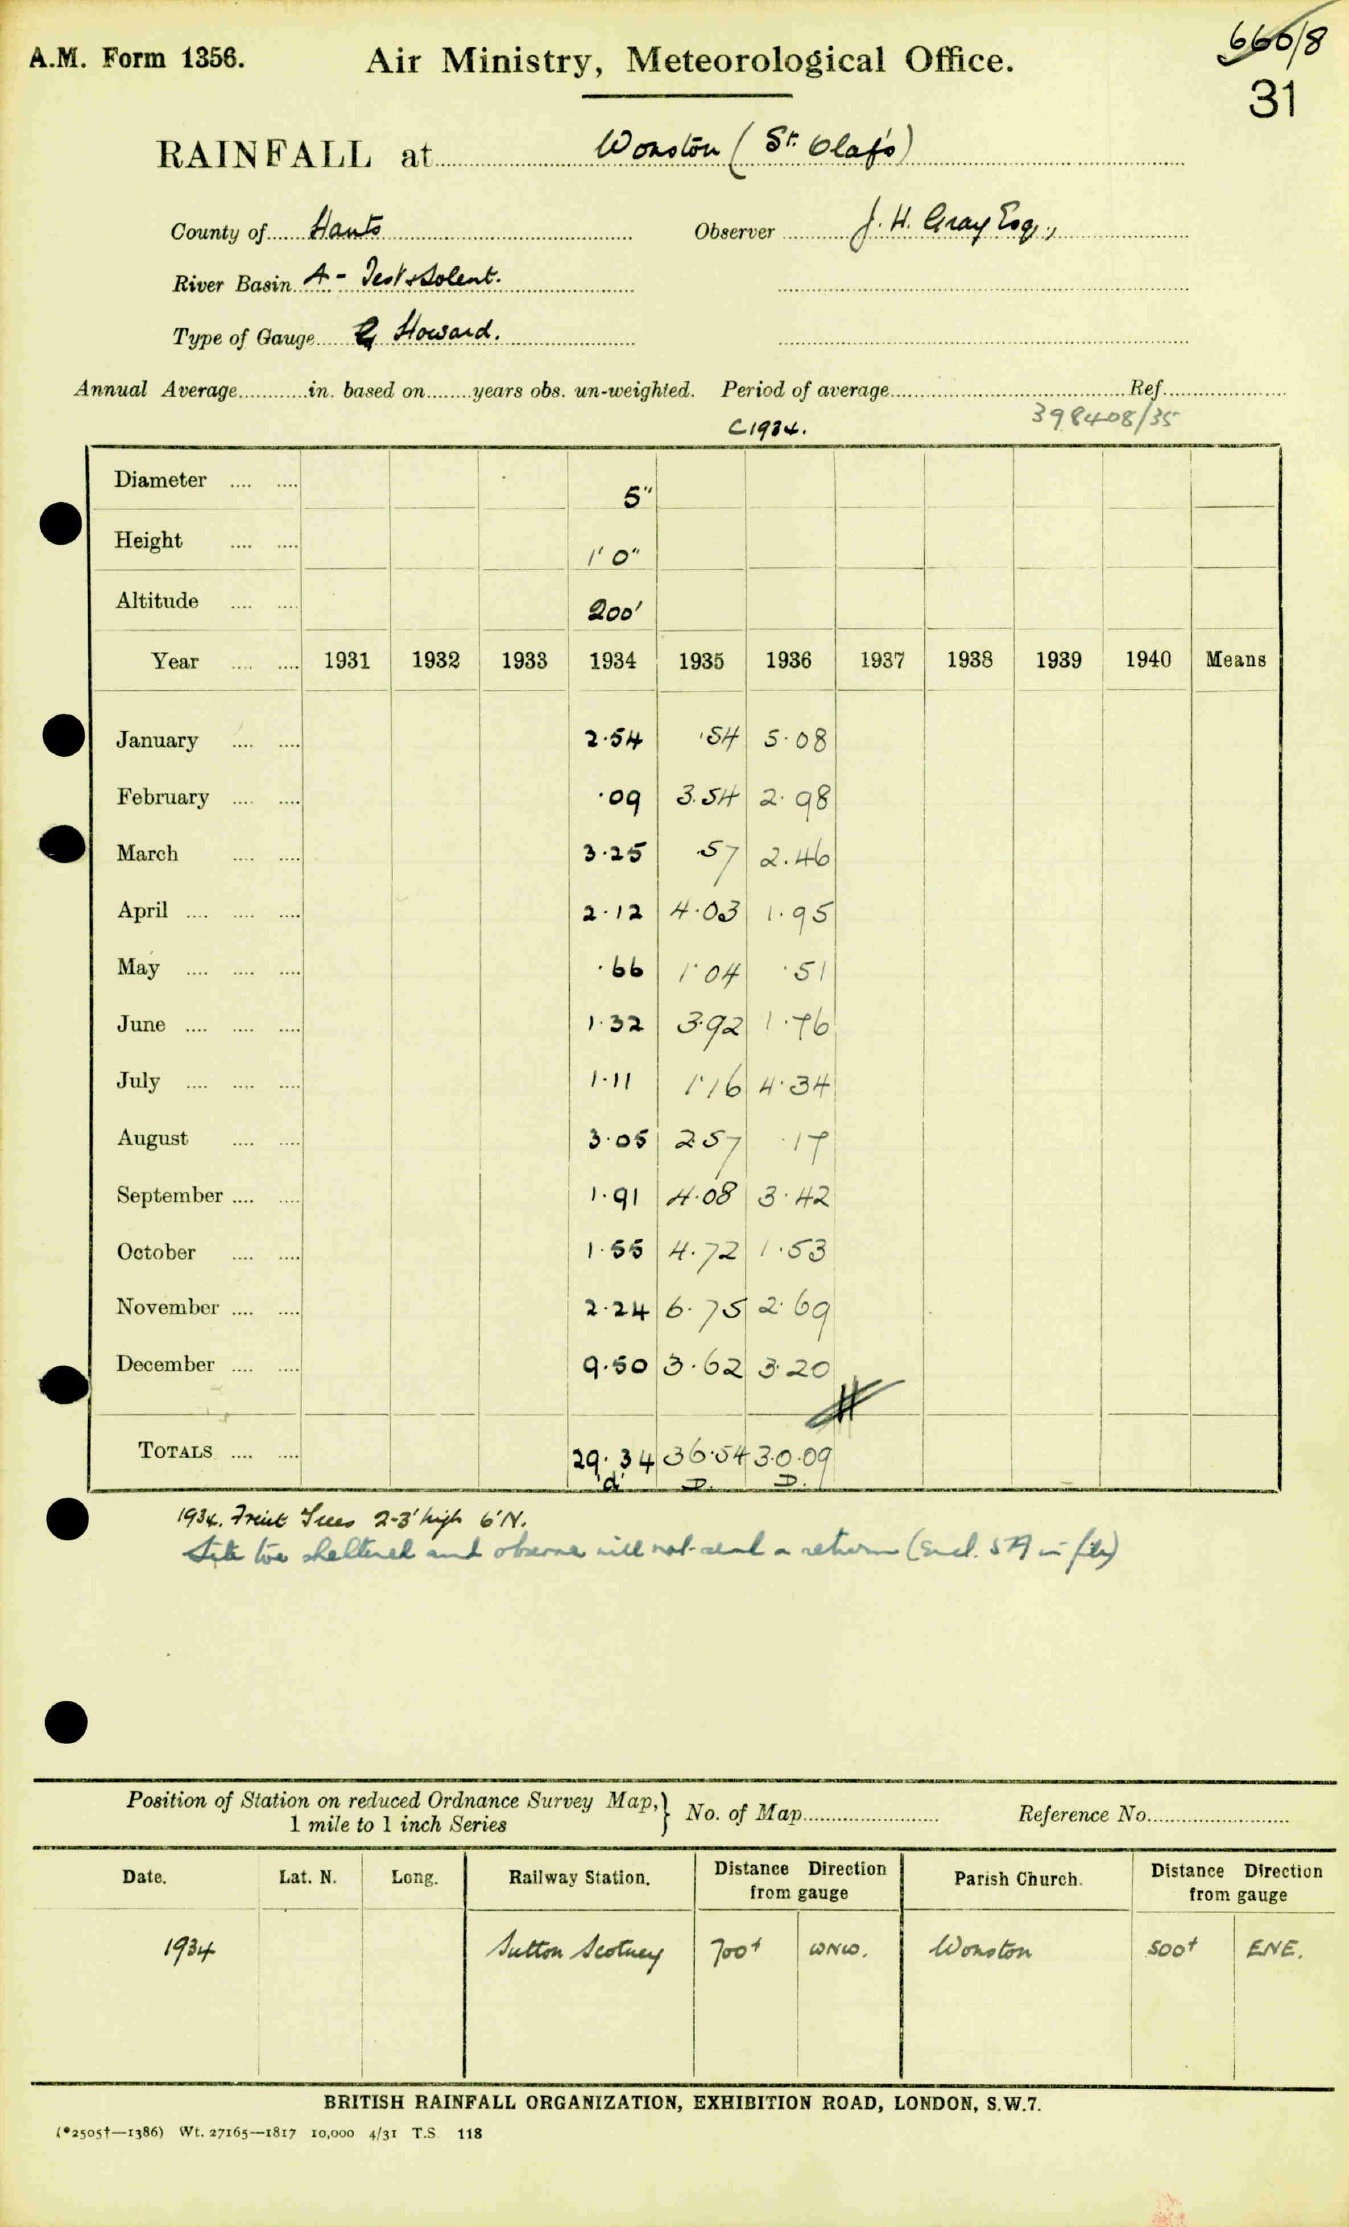 A.M. Form 1356.
Air Ministry, Meteorological Office.
666/8
31
RAINFALL at Wonston (St. Olaf's)
County of Hants
Observer J. H. Gray Esq.,
River Basin A - Test & Solent.
Type of Gauge G Howard.
Annual Average in. based on years obs. un-weighted. Period of average Ref.
C1934.
398408/35
Diameter 5"
Height 1' 0"
Altitude 200'
Year 1931 1932 1933 1934 1935 1936 1937 1938 1939 1940 Means
January 2.54 .54 5.08
February .09 3.54 2.98
March 3.25 .57 2.46
April 2.12 4.03 1.95
May .66 1.04 .51
June 1.32 3.92 1.76
July 1.11 1.16 4.34
August 3.05 2.57 .17
September 1.91 4.08 3.42
October 1.55 4.72 1.53
November 2.24 6.75 2.69
December 9.50 3.62 3.20
TOTALS 29.34 36.54 30.09
d D. D.
1934. Fruit Trees 2-3' high 6'N.
Site too sheltered and observer will not send a return (Encl. 57 in file)
Position of Station on reduced Ordnance Survey Map,
1 mile to 1 inch Series
No. of Map
Reference No.
Date. Lat. N. Long. Railway Station. Distance Direction from gauge Parish Church. Distance Direction from gauge
1934 Sutton Scotney 700† WNW. Wonston 500† ENE.
BRITISH RAINFALL ORGANIZATION, EXHIBITION ROAD, LONDON, S.W.7.
(*2505†—1386) Wt. 27165—1817 10,000 4/31 T.S 118